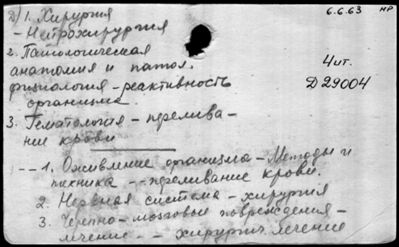 д) 1. Хирургия
6.6.63 НР
- Нейрохирургия
2. Патологическая
анатомия и патол.
4 ит.
физиология - реактивность
Д 29004
организма
3. Гематология - перелива-
ние крови
-- 1. Оживление организма - Методы и
техника -- переливание крови.
2. Нервная система - хирургия
3. Черепно-мозговые повреждения -
лечение -- хирургич. лечение